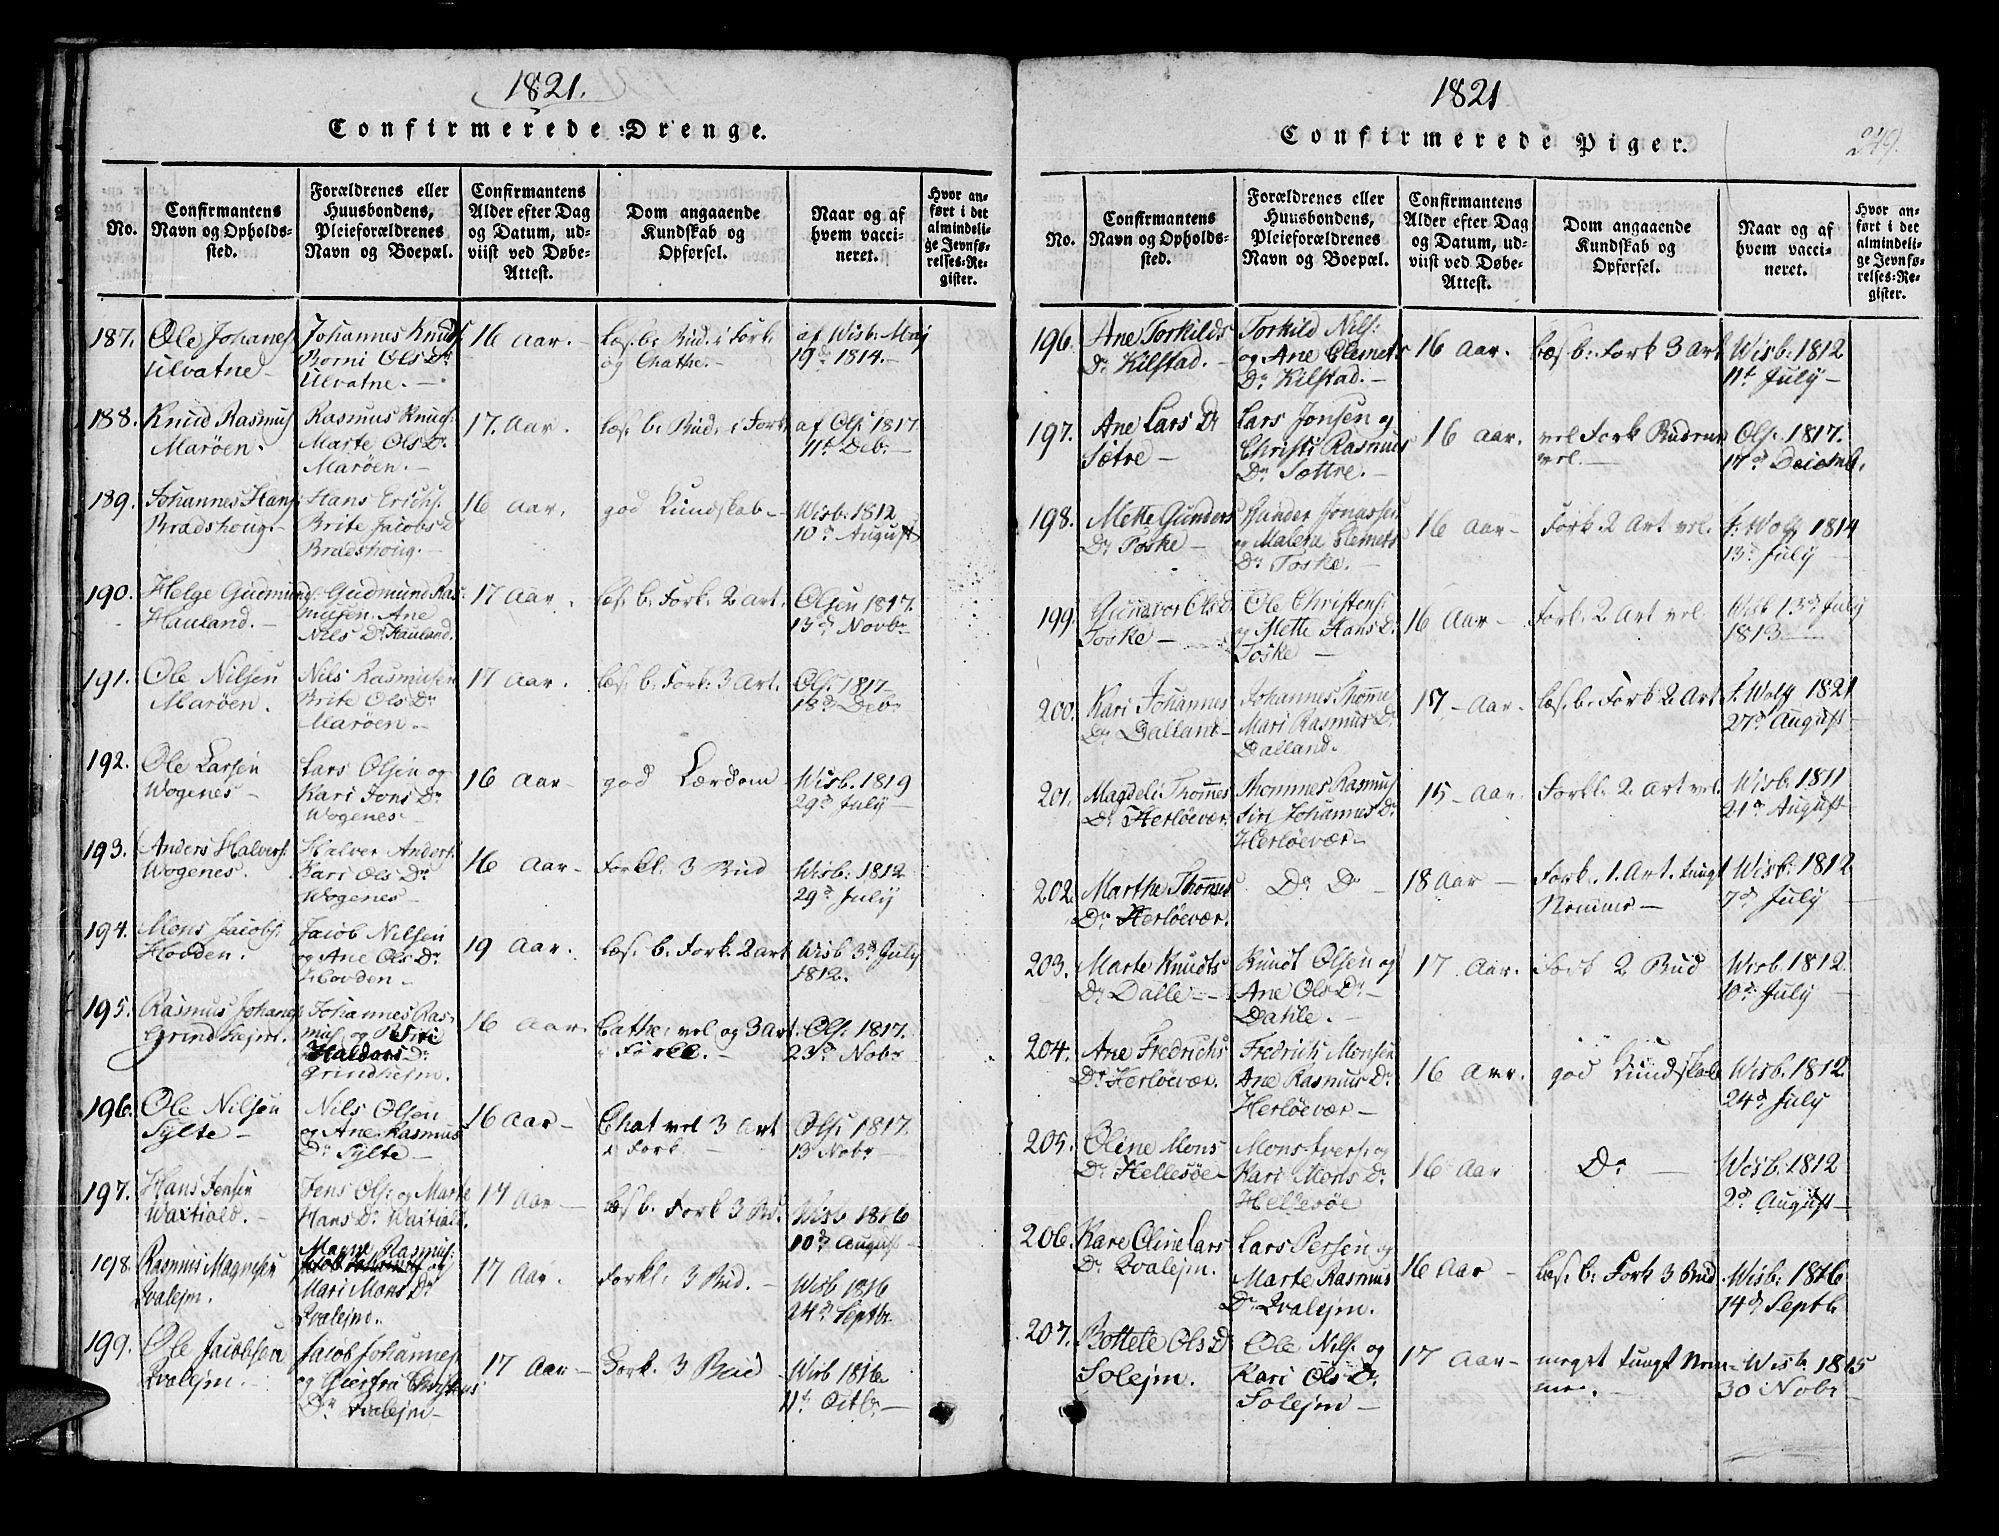 1821.
Confirmerede Drenge.
No.
Confirmantens
Navn og Opholds-
sted.
Forældrenes eller
Huusbondens,
Pleieforældrenes
Navn og Boepæl.
Confirmantens
Alder efter Dag
og Datum, ud-
viist ved Døbe-
Attest.
Dom angaaende
Kundskab og
Opførsel.
Naar og af
hvem vacci-
neret.
Hvor an-
ført i det
almindeli-
ge Jevnfø-
relses-Re-
gister.
187.
Ole Johanes
Ulvatne
Johannes Knuds
Borni Ols Dr
Ulvatne.
16 Aar.
læs. b. Bud. i Fork.
og Chathe.
af Wisb. Maj
19d 1814.
188.
Knud Rasmus
Marøen.
Rasmus Knuds:
Marte Ols Dr
Marøen.
17. Aar.
læs. b. Bud. i Fork
af Ols: 1817.
11t Deb.
189.
Johannes Hans
Bradshoug.
Hans Erichs:
Brite Jacobs D.
Bradshoug.
16 Aar.
god Kundskab
Wisb. 1812
10d August
190.
Helge Gudmund:
Hauland.
Gudmund Ras-
musen. Ane
Nils Dr Hauland.
17 Aar.
læs. b. Fork. 2 Art.
Olsen 1817.
13d Novbr
191.
Ole Nilsen
Marøen.
Nils Rasmusen
Brite Ols Dr
Marøen.
17 Aar.
læs. b. Fork: 3 Art.
Ols. 1817
18d Debr
192.
Ole Larsen
Wogenes
Lars Olsen og
Kari Jons Dr
Wogenes
16 Aar
god Lærdom
Wisb. 1819
29d July
193.
Anders Halvers:
Wogenes.
Halver Anders:
Kari Ols Dr
Wogenes
16 Aar
Forkl: 3 Bud
Wisb: 1812
29d July
194.
Mons Jacobs:
Hovden.
Jacob Nilsen
og Ane Ols Dr
Hovden
19 Aar.
læs. b. Fork. 2 art
Wisb 3d July
1812.
195.
Rasmus Johanes
Grindhejm.
Johannes Ras-
mus og Siri
Haldors Dr
Grindhejm.
16 Aar.
Cathe: vel og 3 Art
i Forkl.
Ols. 1817.
23d Nobr
196.
Ole Nilsen
Sylte
Nils Olsen
og Ane Rasmus
Dr Sylte
16 Aar
Chat vel 3 Art
i Fork
Ols: 1817.
13 Nobr
197.
Hans Jensen
Waxtiald.
Jens Ols: og Marte
Hans Dr Waxtiald.
17 Aar
læs b. Fork 3 Bd.
Wisb 1816
10d August
198.
Rasmus Magnesen
Qvalejm.
Magne Rasmus:
og
Mari Mons Dr
Qvalejm.
17 Aar.
Forkl: 3 Bud.
Wisb 1816
24d Septbr
199.
Ole Jacobsen
Qvalejm.
Jacob Johannes
og Christens
Dr Qvalejm
17 Aar
Fork. 3 Bud
Wisb 1816
11t Octbr
1821
Confirmerede Piger.
249.
No.
Confirmantens
Navn og Opholds-
sted.
Forældrenes eller
Huusbondens,
Pleieforældrenes
Navn og Boepæl.
Confirmantens
Alder efter Dag
og Datum, ud-
viist ved Døbe-
Attest.
Dom angaaende
Kundskab og
Opførsel.
Naar og af
hvem vacci-
neret.
Hvor an-
ført i det
almindeli-
ge Jevnfø-
relses-Re-
gister.
196.
Ane Torkilds
Dr Kilstad.
Torkild Nils:
og Ane Clemets
Dr Kilstad.
16 Aar.
læs b: Fork 3 Art
Wisb: 1812
11t July
197.
Ane Lars Dr
Sætre
Lars Jonsen og
Christi Rasmus
Dr Sættre.
16 Aar.
vel Fork Budene
vel.
Ols: 1817.
17d Decemb.
198.
Mette Gunders
Dr Toske
Gunder Jonassen
og Malena Clemets
Dr Toske.
16 Aar
Fork 2 Art vel.
f: Wolf 1814
13d July
199.
Gundvor Ols D.
Toske
Ole Christens:
og Mette Hans D.
Toske
16 Aar
Fork. 2 Art vel.
Wisb 13d July
1813
200.
Kari Johannes
Dr Dalland
Johannes Thomæ
Mari Rasmus Dr
Dalland.
17 Aar.
læs. b. Fork 2 Art
f. Wolf 1821
27d August
201.
Magdeli Thomes
Dr Herløevær.
Thommes Rasmus
Siri Johannes Dr
Herløevær
15 Aar
Forkl: 2 Art vel
Wisb. 1811
21d August
202.
Marthe Thomes
Dr Herløevær.
Dr Dr
18 Aar
Fork. 1. Art. tungt
Nemme
Wisb: 1812
7d July
203.
Marte Knudts
Dr Dalle
Knudt Olsen og
Ane Ols Dr
Dahle.
17 Aar.
Fork 2 Bud
Wisb. 1812
10d July
204.
Ane Fredrichs
Dr Herløevær.
Fredrich Monsen
Ane Rasmus Dr
Herløevær
16 Aar.
god Kundskab
Wisb. 1812.
24d July
205.
Oline Mons
Dr Hellesøe
Mons Ivers: og
Kari Mons Dr
Hellesøe
16 Aar
Dr
Wisb. 1812
2d August
206.
Kare Oline Lars
Dr Qvalejm.
Lars Persen og
Marte Rasmus
Dr Qvalejm.
16 Aar
læs. b: Fork 3 Bud
Wisb: 1816
14d Septb
207.
Bottele Ols D.
Solejm.
Ole Nils: og
Kari Ols Dr
Solejm
17 Aar
meget tungt Nem-
me.
Wisb 1815
30 Nobr